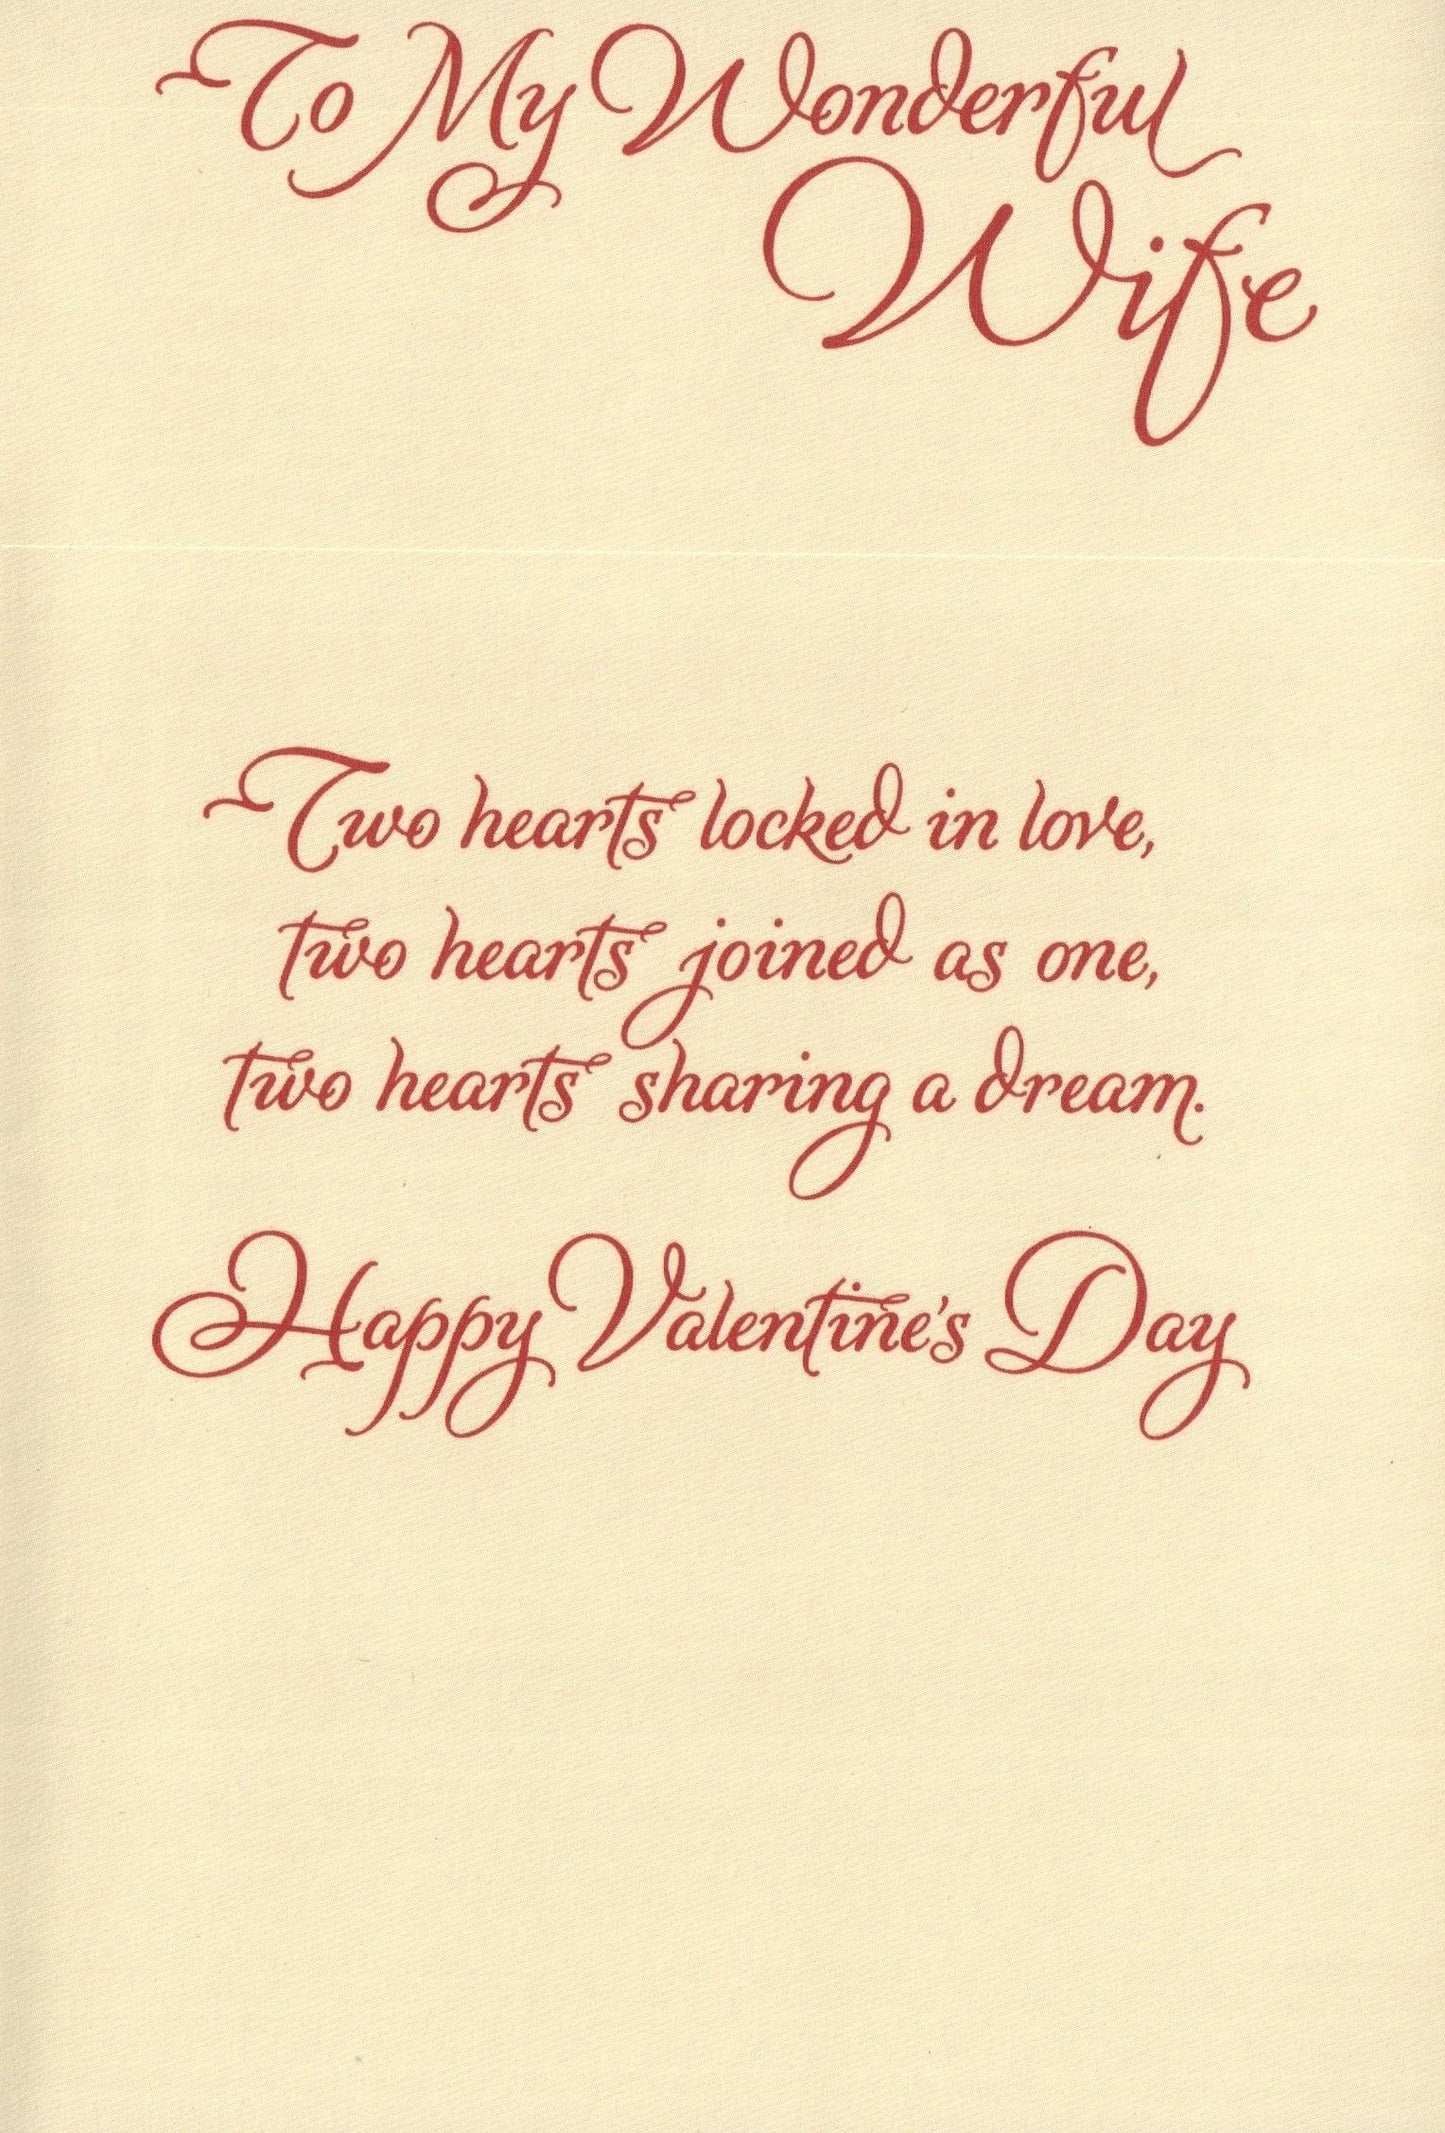 To My Wonderful
Wife
Two hearts locked in love,
two hearts joined as one,
two hearts sharing a dream.
Happy Valentine's Day